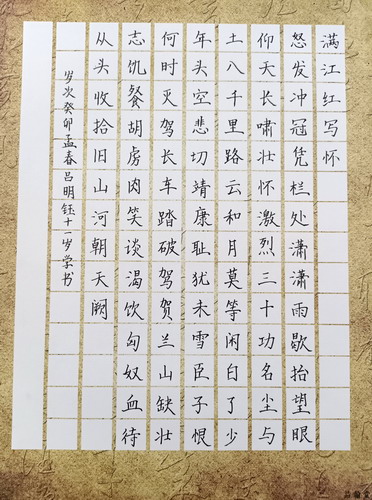 满江红写怀
怒发冲冠凭栏处潇潇雨歇抬望眼
仰天长啸壮怀激烈三十功名尘与
土八千里路云和月莫等闲白了少
年头空悲切靖康耻犹未雪臣子恨
何时灭驾长车踏破驾贺兰山缺壮
志饥餐胡虏肉笑谈渴饮匈奴血待
从头收拾旧山河朝天阙
岁次癸卯孟春吕明钰十一岁学书